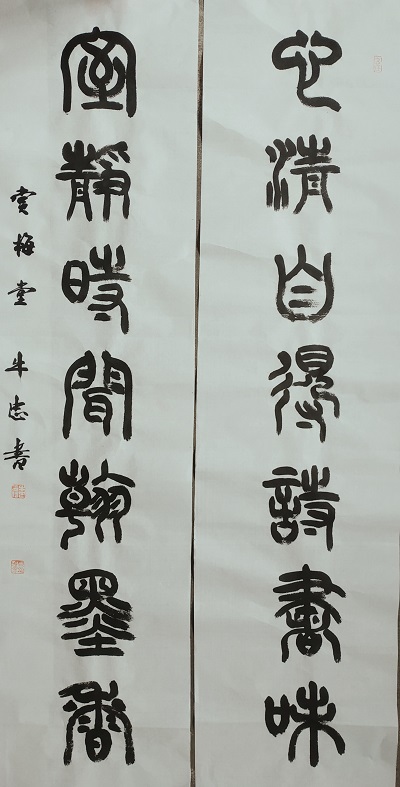 心清自得詩書味
室靜時聞翰墨香
賞梅堂 牛志書